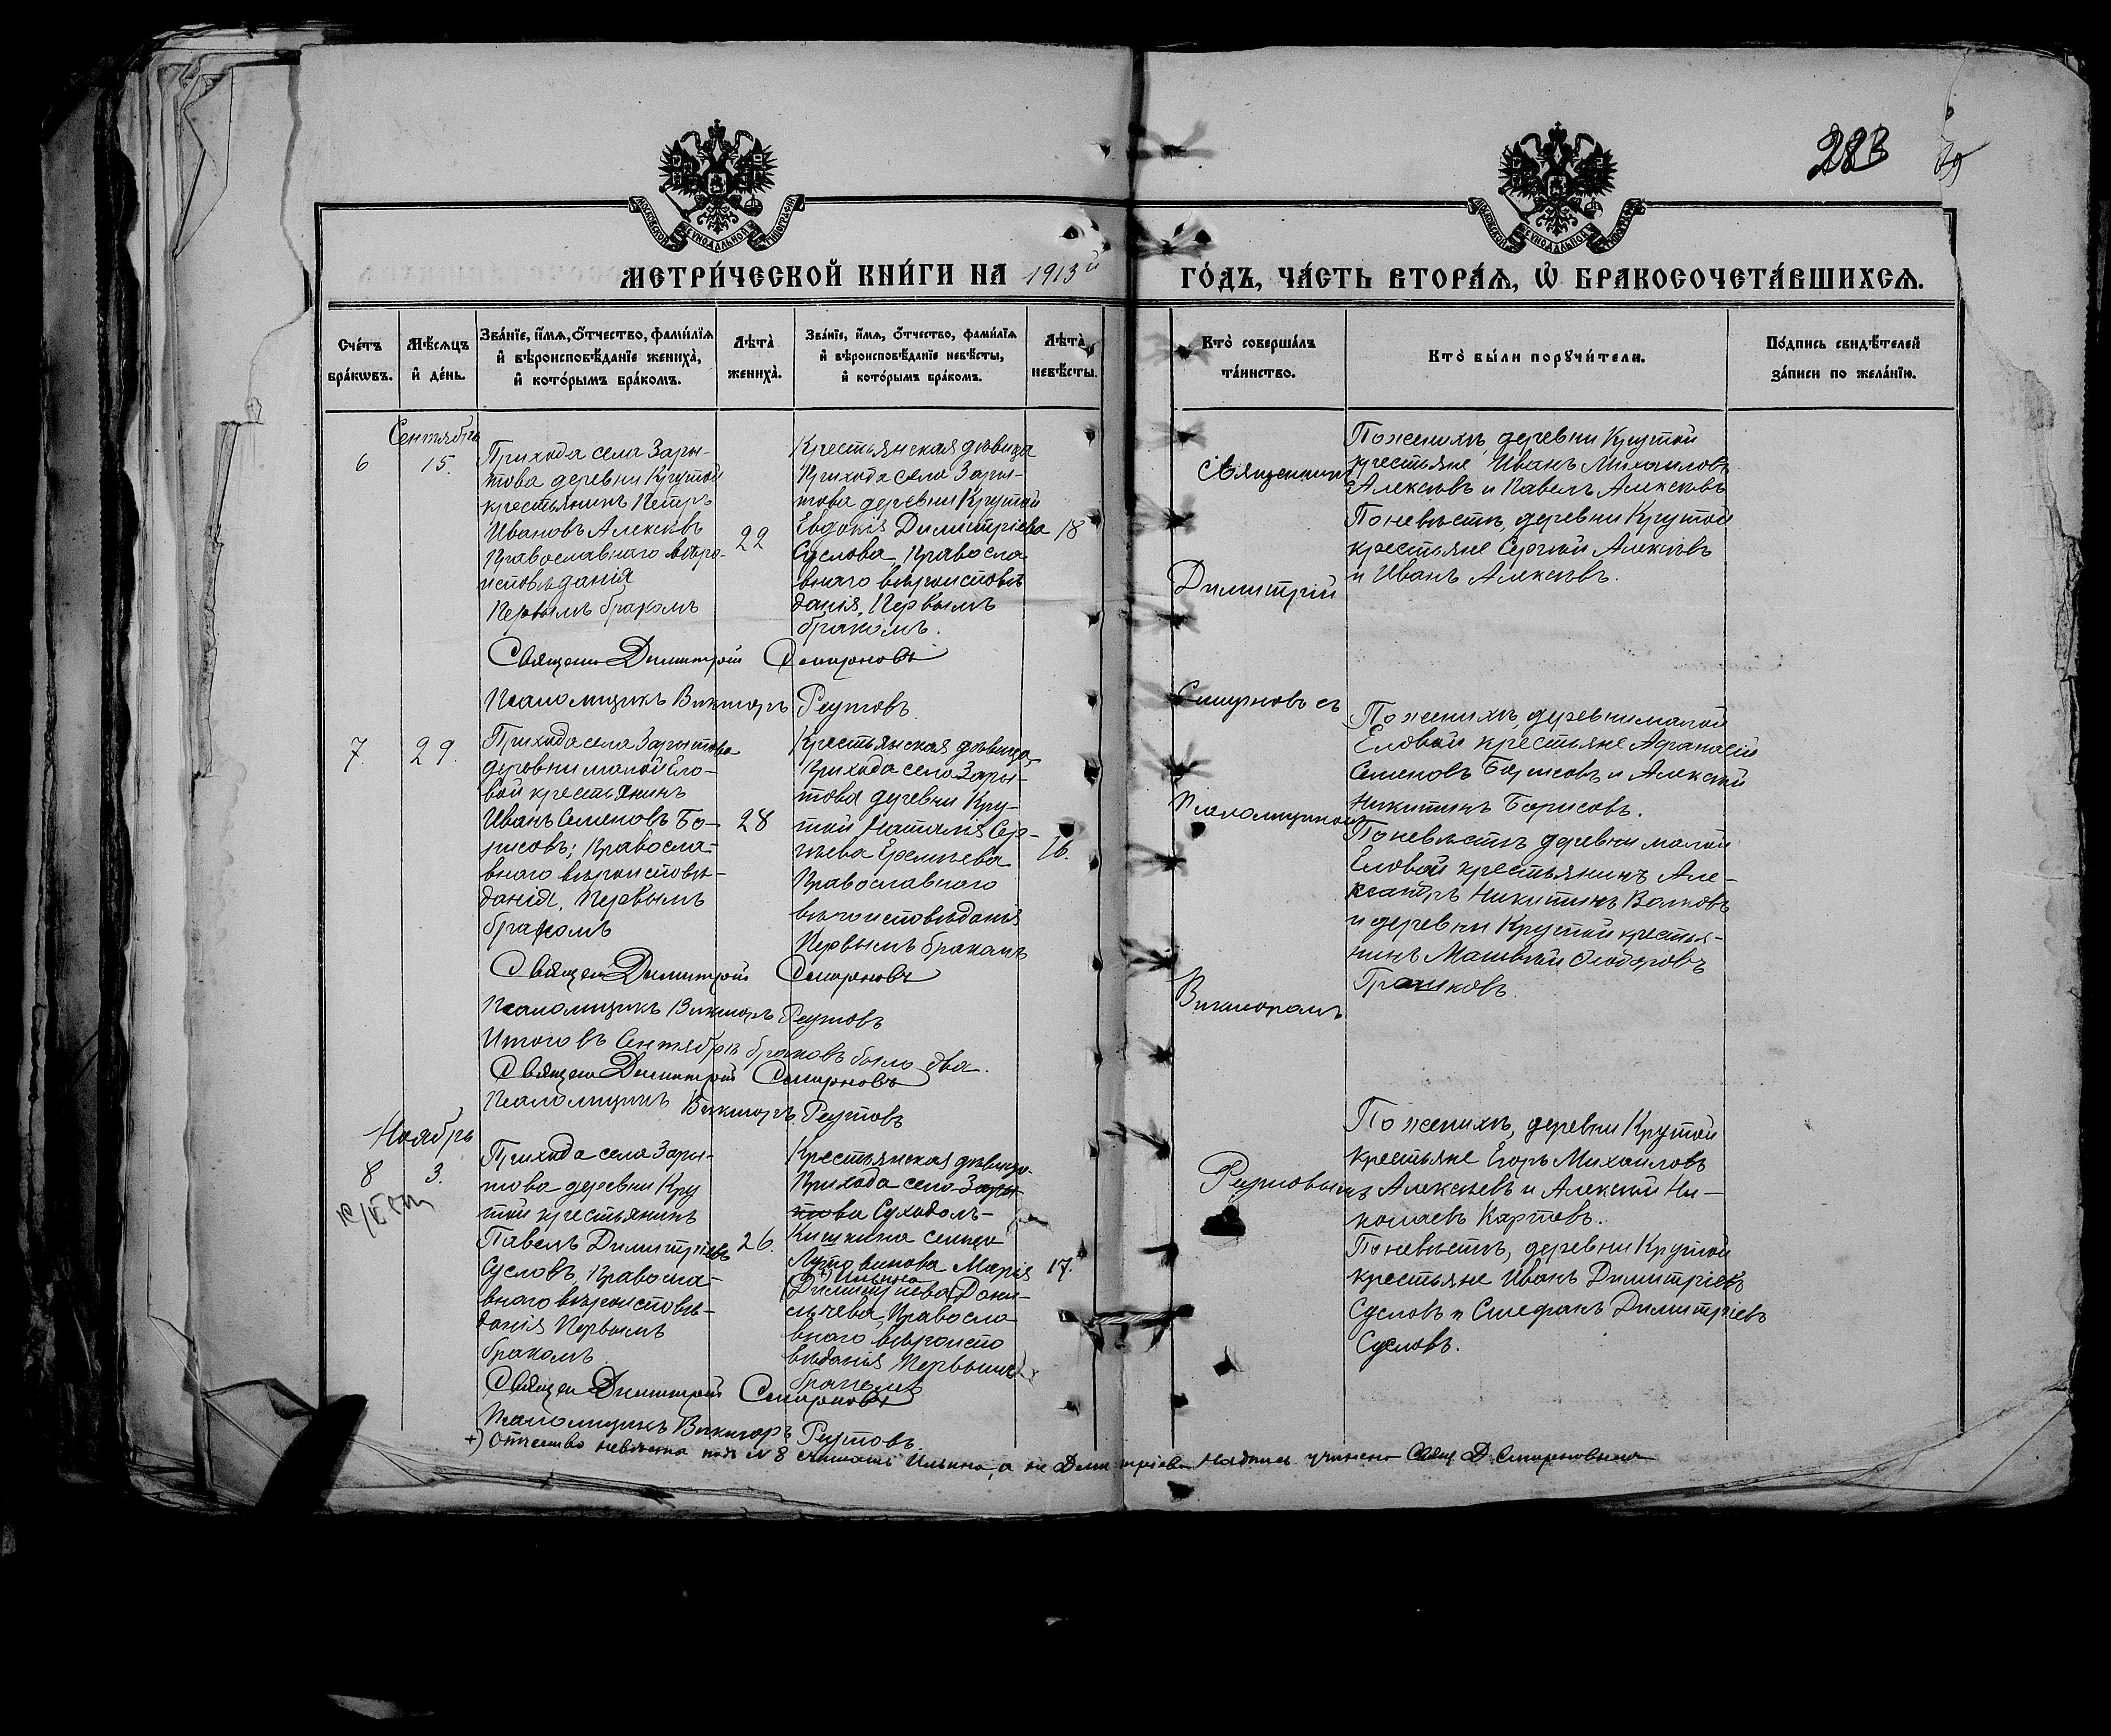 283
МОСКОВСКОЙ СѴНОДАЛЬНОЙ ТИПОГРАФІИ
МОСКОВСКОЙ СѴНОДАЛЬНОЙ ТИПОГРАФІИ
МЕТРИ́ЧЕСКОЙ КНИ́ГИ НА 1913й ГО́ДЪ, ЧА́СТЬ ВТОРА́Ѧ, Ѽ БРАКОСОЧЕТА́ВШИХСѦ.
Сче́тъ бра́кѡвъ.
Мѣ́сѧцъ и҆ де́нь.
Зва́нїе, и҆́мѧ, ѻ҆́тчество, фами́лїѧ
и҆ вѣроисповѣ́данїе жениха̀,
и҆ кото́рымъ бра́комъ.
Лѣта̀ жениха̀.
Зва́нїе, и҆́мѧ, ѻ҆́тчество, фами́лїѧ
и҆ вѣроисповѣ́данїе невѣ́сты,
и҆ кото́рымъ бра́комъ.
Лѣта̀ невѣ́сты.
Кто̀ соверша́лъ
та́инство.
Кто̀ бы́ли порꙋчи́тели.
По́дпись свидѣ́телей
за́писи по жела́нїю.
Сентября
6
15.
Прихода села Зары-
това деревни Крутой
крестьянинъ Петръ
Ивановъ Алексѣевъ
Православнаго вѣро-
исповѣданія
Первымъ бракомъ
22
Крестьянская дѣвица
Прихода села Зары-
това деревни Крутой
Евдокія Димитріева
Суслова, Правосла
внаго вѣроисповѣ
данія, Первымъ
бракомъ.
18
По женихѣ, деревни Крутой
крестьяне Иванъ Михаиловъ
Алексѣевъ и Павелъ Алексѣевъ
По невѣстѣ, деревни Крутой
крестьяне Сергѣй Алексѣевъ
и Иванъ Алексѣевъ.
Священникъ
Димитрій
Смирновъ съ
Псаломщикомъ
Викторомъ
Реутовымъ
Священ Димитрій Смирновъ
Псаломщикъ Викторъ Реутовъ
7.
29.
Прихода села Зарытова
деревни малой Ело-
вой крестьянинъ
Иванъ Семеновъ Бо-
рисовъ; Правосла-
внаго вѣроисповѣ-
данія, Первымъ
бракомъ
28
Крестьянская дѣвица,
Прихода села Зары-
това деревни Кру-
той Наталія Сер-
гѣева Еремѣева
Православнаго
вѣроисповѣданія
Первымъ бракомъ
16.
По женихѣ, деревни малой
Еловой крестьяне Афанасій
Семеновъ Борисовъ и Алексѣй
Никитинъ Борисовъ.
По невѣстѣ деревни малой
Еловой крестьянинъ Але-
ксандръ Никитинъ Волковъ
и деревни Крутой крестья-
нинъ Матвѣй Ѳедоровъ
Священ Димитрій Смирновъ
Псаломщикъ Викторъ Реутовъ
Итого въ Сентябрѣ браковъ было два.
Священ Димитрій Смирновъ
Псаломщикъ Викторъ Реутовъ
Ноябрь
8
3.
Прихода села Зары-
това деревни Кру
той крестьянинъ
Павелъ Димитріевъ
Сусловъ, Правосла-
внаго вѣроисповѣ-
данія Первымъ
бракомъ.
26.
Крестьянская дѣвица
Прихода села Зары-
това Суходолъ-
Кишкина сельца
Лутовинова Марія
+) Ильина
Димитріева Дани-
лычева, Правосла
внаго вѣроиспо
вѣданія Первымъ
бракомъ
17.
По женихѣ, деревни Крутой
крестьяне Егоръ Михаиловъ
Алексѣевъ и Алексѣй Ни-
колаевъ Карповъ.
По невѣстѣ, деревни Крутой
крестьяне Иванъ Димитріевъ
Сусловъ и Стефанъ Димитріевъ
Сусловъ.
Священ Димитрій Смирновъ
Псаломщикъ Викторъ Реутовъ.
+) Отчество невѣсты подъ N 8 считать Ильина, а не Димитріева Надпись учинена Свящ. Д. Смирновымъ